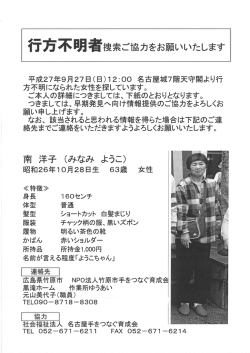 行方不明者捜索ご協力をお願いいたします
平成27年9月27日(日)12:00 名古屋城7階天守閣より行
方不明になられた女性を探しています。
ご本人の詳細につきましては、下紙のとおりとなります。
つきましては、早期発見へ向け情報提供のご協力をよろしくお
願い申し上げます。
なお、該当されると思われる情報を得た場合は下記のご連
絡先までご連絡をいただきますようよろしくお願いいたします。
南 洋子 (みなみ ようこ)
昭和26年10月28日生 63歳 女性
≪特徴≫
身長 160センチ
体型 普通
髪型 ショートカット 白髪まじり
服装 チャック柄の服、黒いズボン
履物 明るい茶色の靴
かばん 赤いショルダー
所持品 所持金1,000円
名前が言える程度「ようこちゃん」
連絡先
広島県竹原市 NPO法人竹原市手をつなぐ育成会
黒滝ホーム 作業所ゆうあい
元山美代子(職員)
TEL090-8718-8308
協力
社会福祉法人 名古屋手をつなぐ育成会
TEL 052-671-6211 FAX 052-671-6214